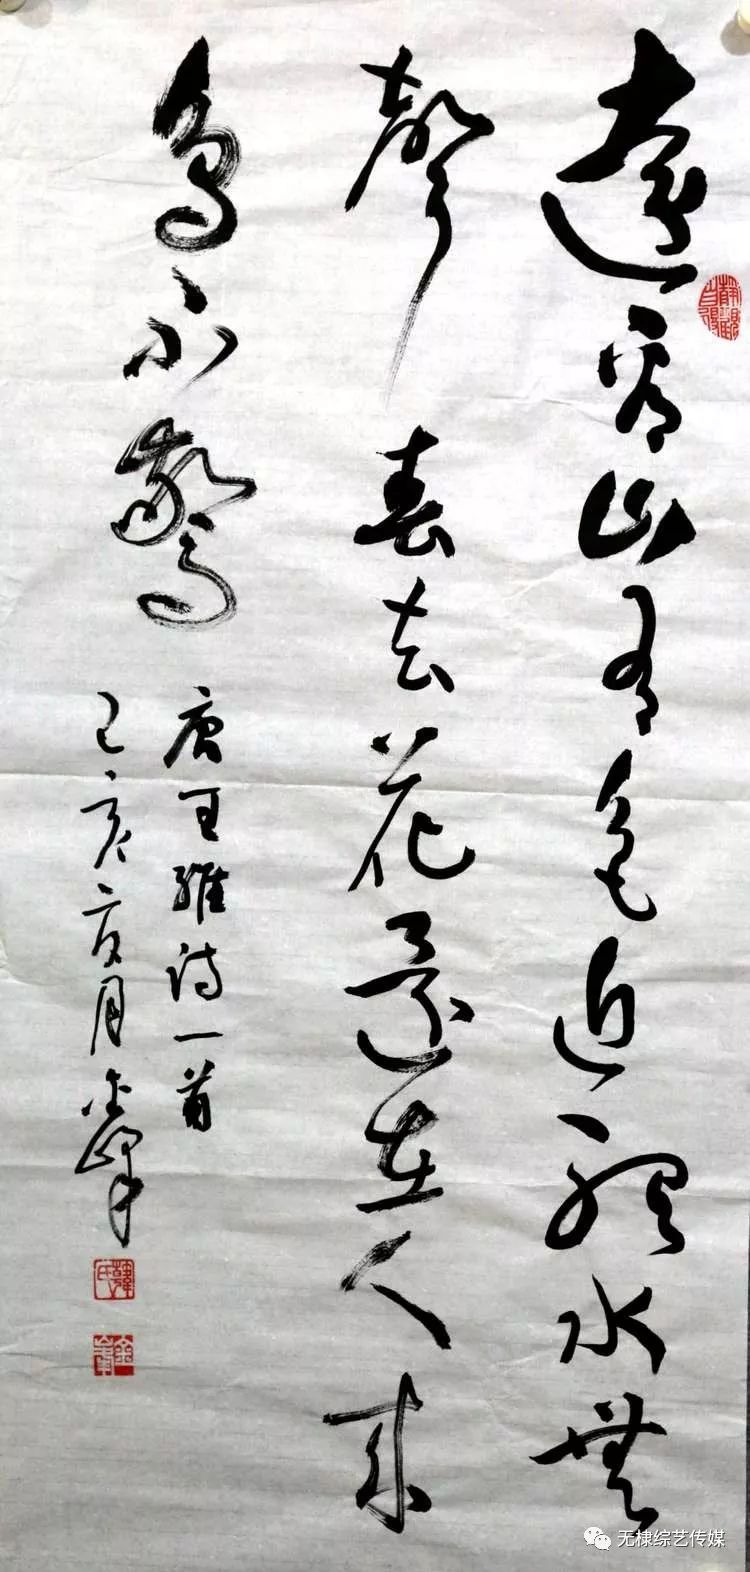 遠看山有色近聽水無
聲春去花還在人來
鳥不驚
唐王維詩一首
己亥夏月金峰
无棣综艺传媒